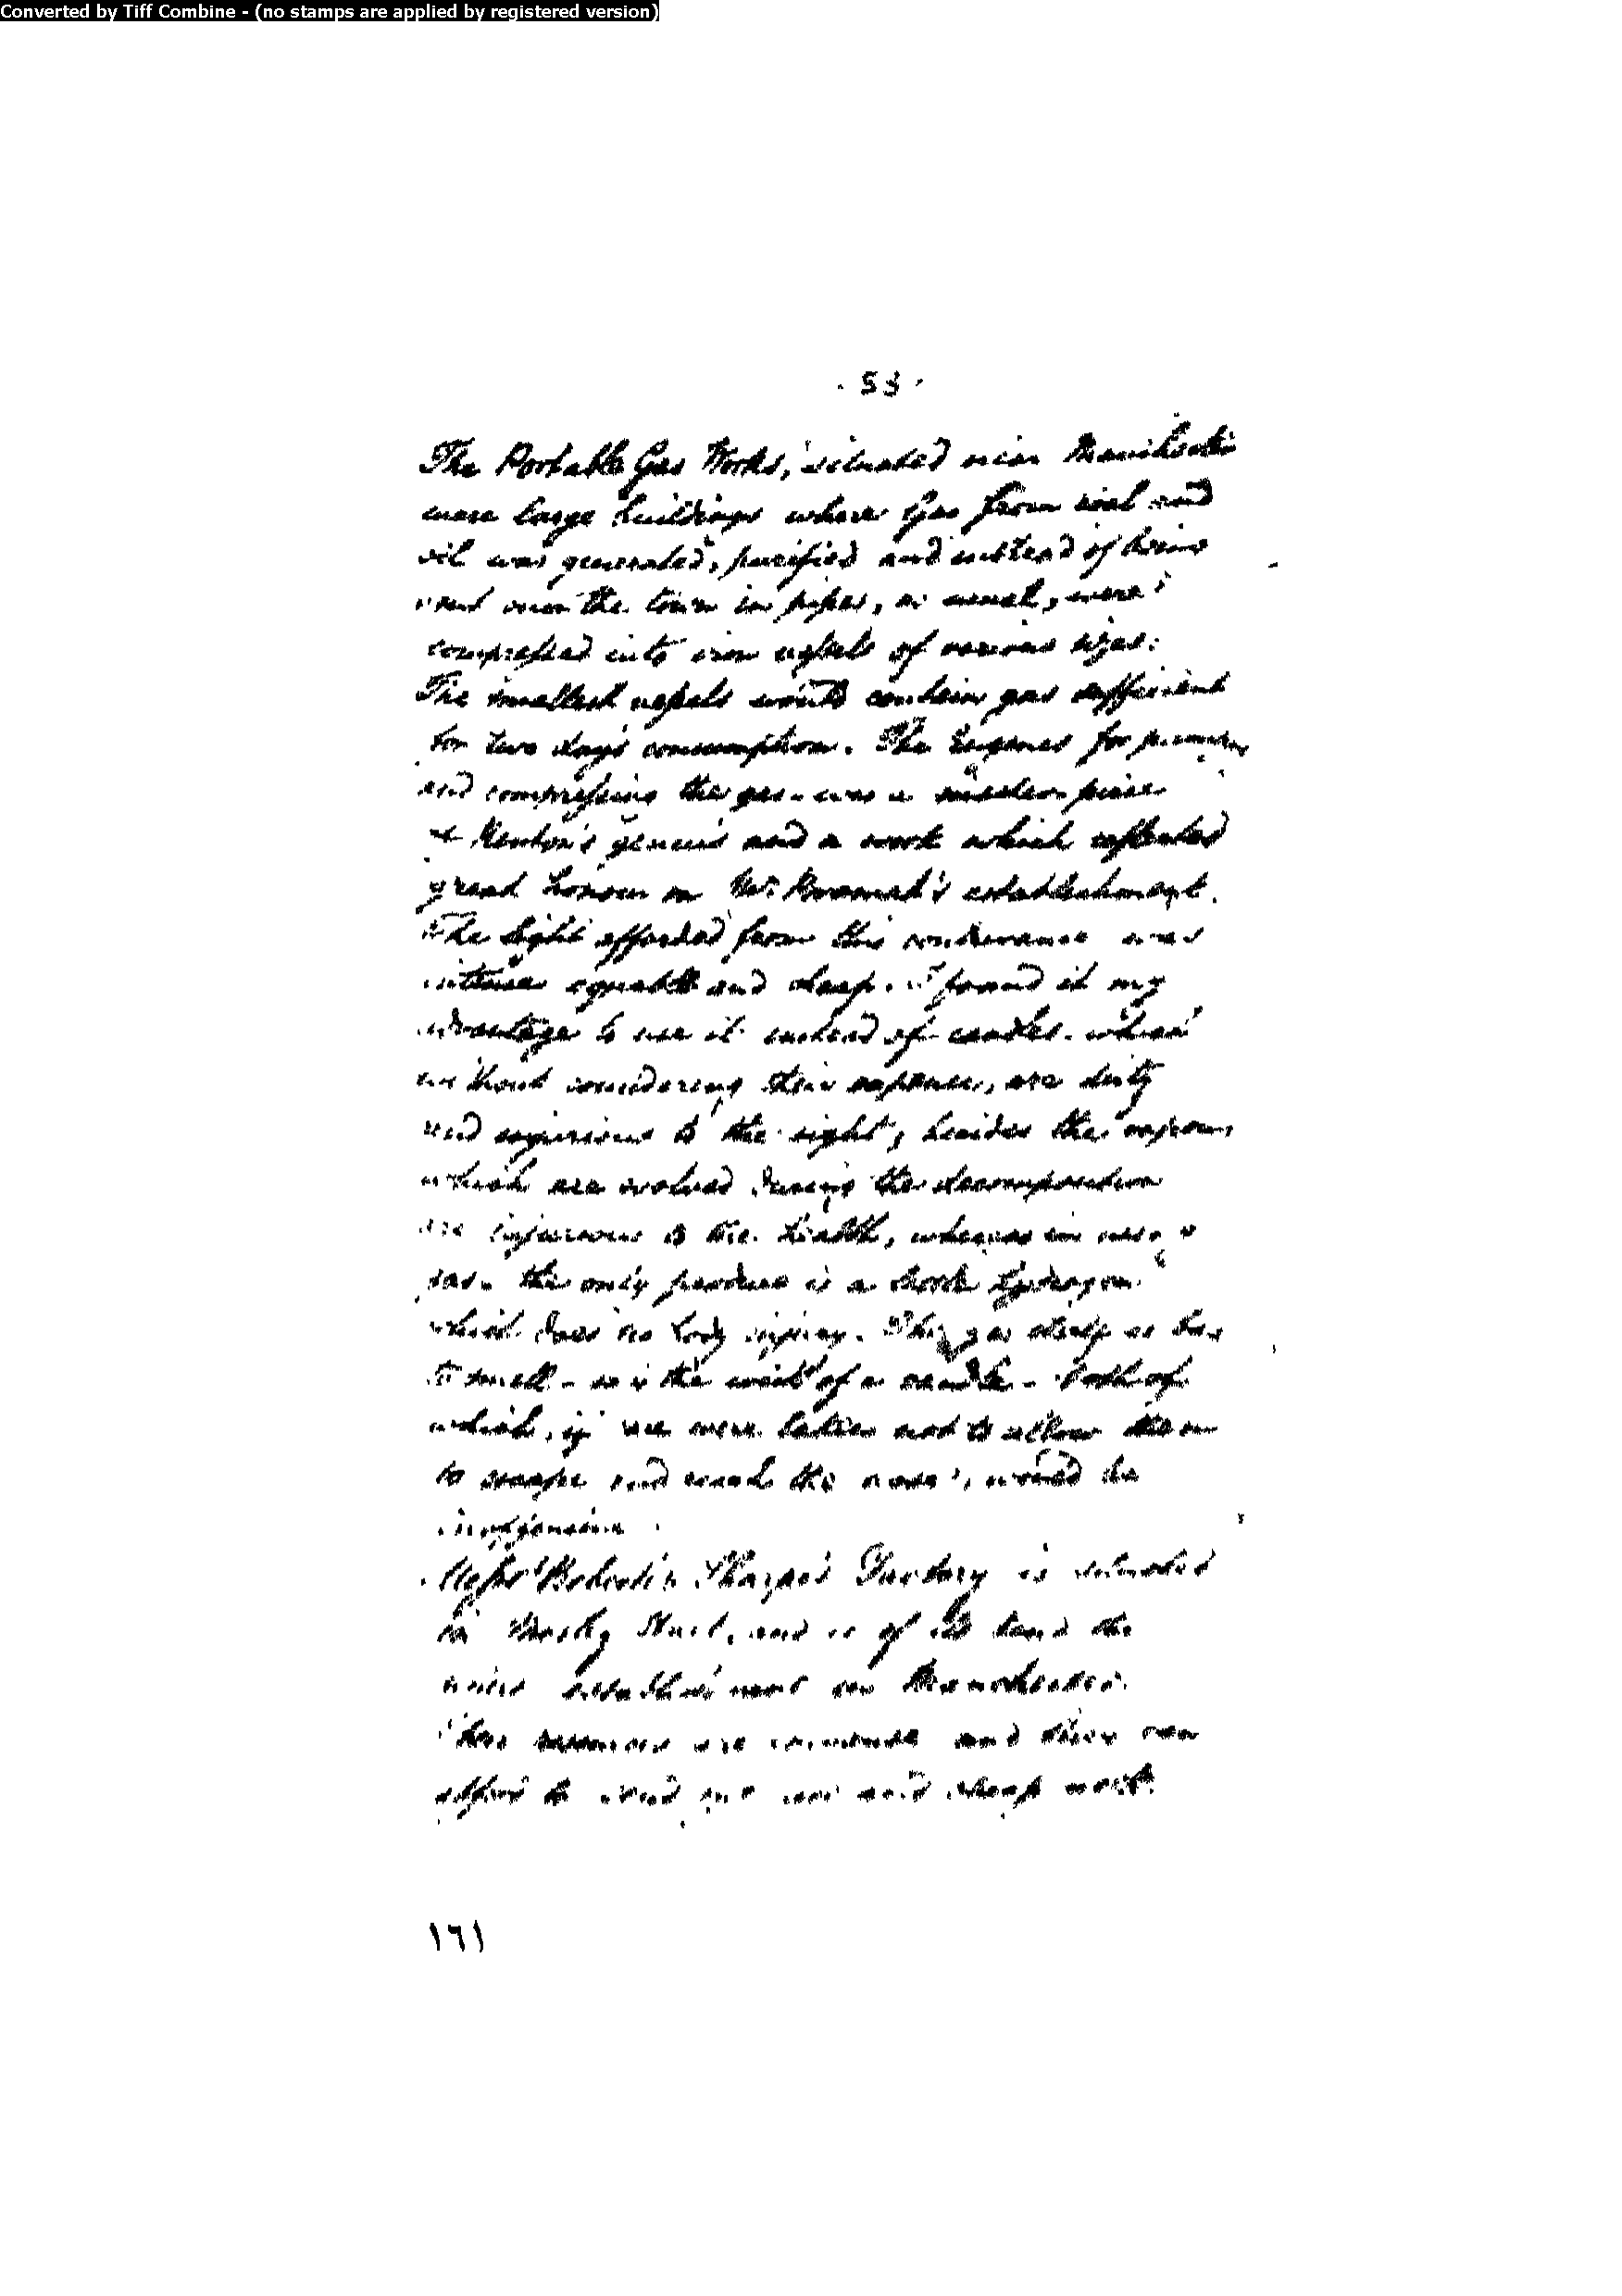 Converted by Tiff Combine - (no stamps are applied by registered version)
. 53 .
The Portable Gas Works, situated near Manchester
were large buildings where Gas from coal and
oil was generated, purified and instead of being
sent over the town in pipes, as usual, were
compressed into iron vessels of various sizes:
The smallest vessels would contain gas sufficient
for two days consumption. The Engines for pumping
and compressing the gas - was a master piece
of genius and a work which reflected
great honour on Mr establishment.
The light afforded from this contrivance was
intense equable and cheap. I found it my
advantage to use it instead of candles. which
without considering their expense, are dirty
and injurious to the sight, besides the vapours
which are evolved during the decomposition
are injurious to the health, whereas in
gas - the only produce is a
which does no body injury. This gas itself is bad
to smell - so is the of a candle - both of
which, if care were taken not to allow them
to escape and reach the nose, would be
inoffensive
Messrs Factory is situated
in Street, and is of its kind the
establishment in Manchester.
are immense and they can
afford to and cheap work.
١٦١